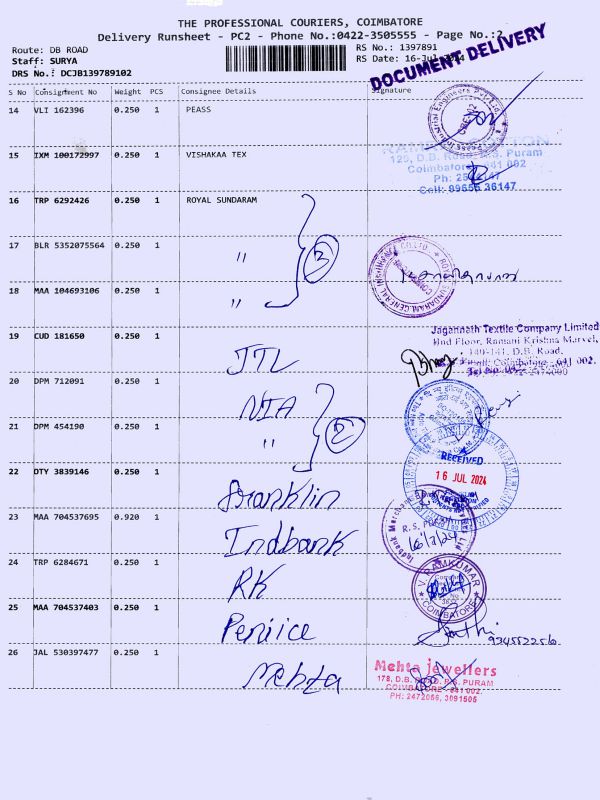 THE PROFESSIONAL COURIERS, COIMBATORE
Delivery Runsheet - PC2 - Phone No.:0422-3505555 - Page No.:2
Route: DB ROAD
Staff: SURYA
DRS No.: DCJB139789102
RS No.: 1397891
RS Date: 16-Jul-2024
DOCUMENT DELIVERY
S No Consignment No Weight PCS Consignee Details Signature
14 VLI 162396 0.250 1 PEASS
15 IXM 100172997 0.250 1 VISHAKAA TEX
125, D.B. Road, R.S. Puram
Coimbatore - 641 002
Ph:
Cell: 99655 36147
16 TRP 6292426 0.250 1 ROYAL SUNDARAM
17 BLR 5352075564 0.250 1 "
3
18 MAA 104693106 0.250 1 "
19 CUD 181650 0.250 1 JTL
Jagannath Textile Company Limited
IInd Floor, Ramani Krishna Marvel,
140-141, D.B. Road,
Coimbatore - 641 002.
20 DPM 712091 0.250 1 NIA
21 DPM 454190 0.250 1 "
2
22 DTY 3839146 0.250 1 Franklin
RECEIVED
16 JUL 2024
23 MAA 704537695 0.920 1 Indbank
R.S. PURAM
16/7/24
24 TRP 6284671 0.250 1 RK
V. RAMKUMAR
COIMBATORE
25 MAA 704537403 0.250 1 Peniice
9345522560
26 JAL 530397477 0.250 1 Mehta
Mehta jewellers
178, D.B. ROAD, R.S. PURAM
COIMBATORE - 641 002.
PH: 2472056, 3091505